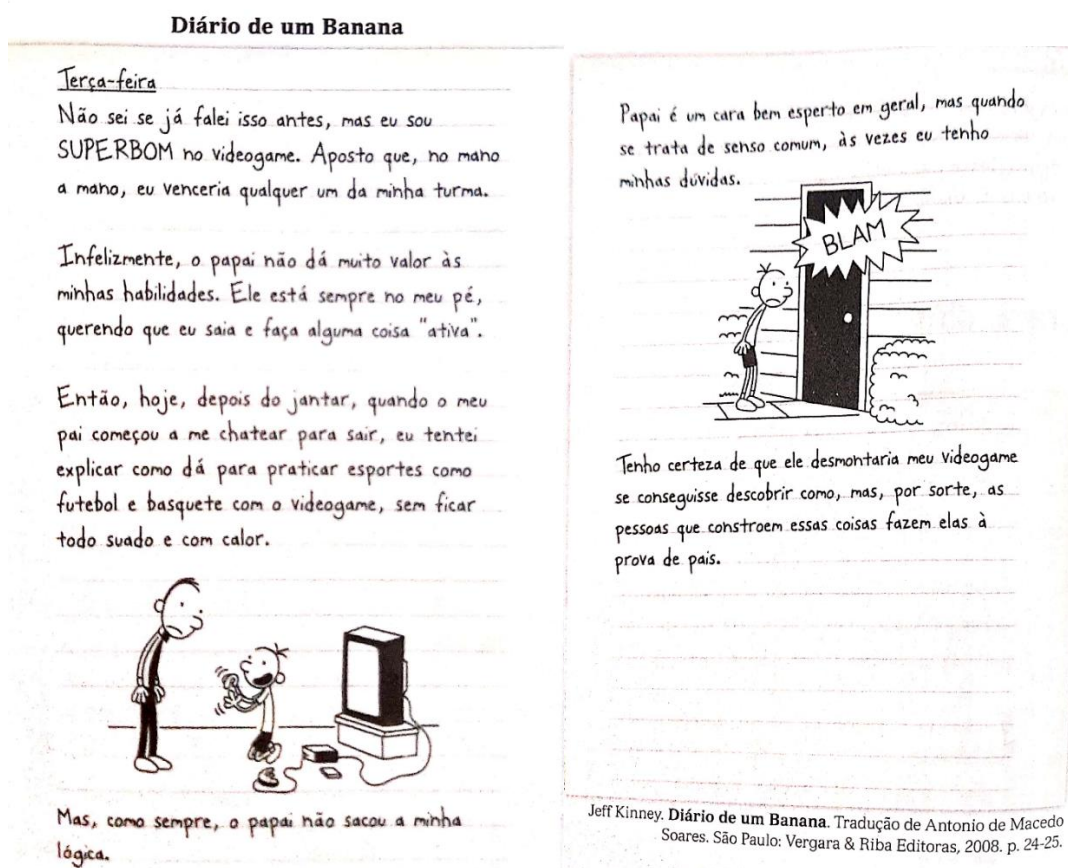 Diário de um Banana
Terça-feira
Não sei se já falei isso antes, mas eu sou
SUPERBOM no videogame. Aposto que, no mano
a mano, eu venceria qualquer um da minha turma.
Infelizmente, o papai não dá muito valor às
minhas habilidades. Ele está sempre no meu pé,
querendo que eu saia e faça alguma coisa "ativa".
Então, hoje, depois do jantar, quando o meu
pai começou a me chatear para sair, eu tentei
explicar como dá para praticar esportes como
futebol e basquete com o videogame, sem ficar
todo suado e com calor.
Mas, como sempre, o papai não sacou a minha
lógica.
Papai é um cara bem esperto em geral, mas quando
se trata de senso comum, às vezes eu tenho
minhas dúvidas.
BLAM
Tenho certeza de que ele desmontaria meu videogame
se conseguisse descobrir como, mas, por sorte, as
pessoas que constroem essas coisas fazem elas à
prova de pais.
Jeff Kinney. Diário de um Banana. Tradução de Antonio de Macedo
Soares. São Paulo: Vergara & Riba Editoras, 2008. p. 24-25.